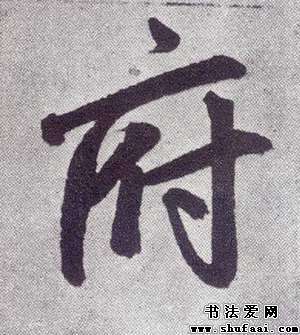 府
书法爱网
www.shufaai.com